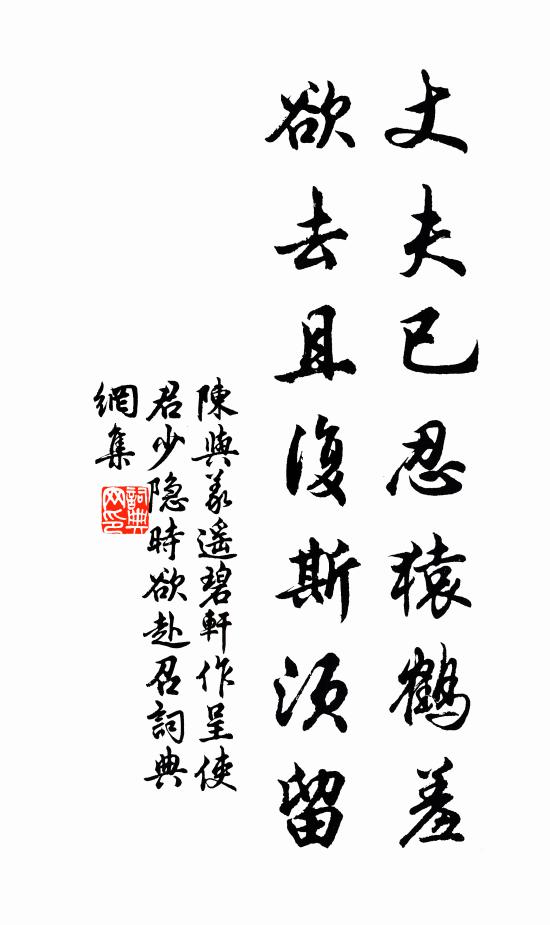 丈夫已忍猿鶴羞
欲去且復斯須留
陳與義遥碧軒作呈使
君少隐時欲赴召詞典
網集
詞典
网印